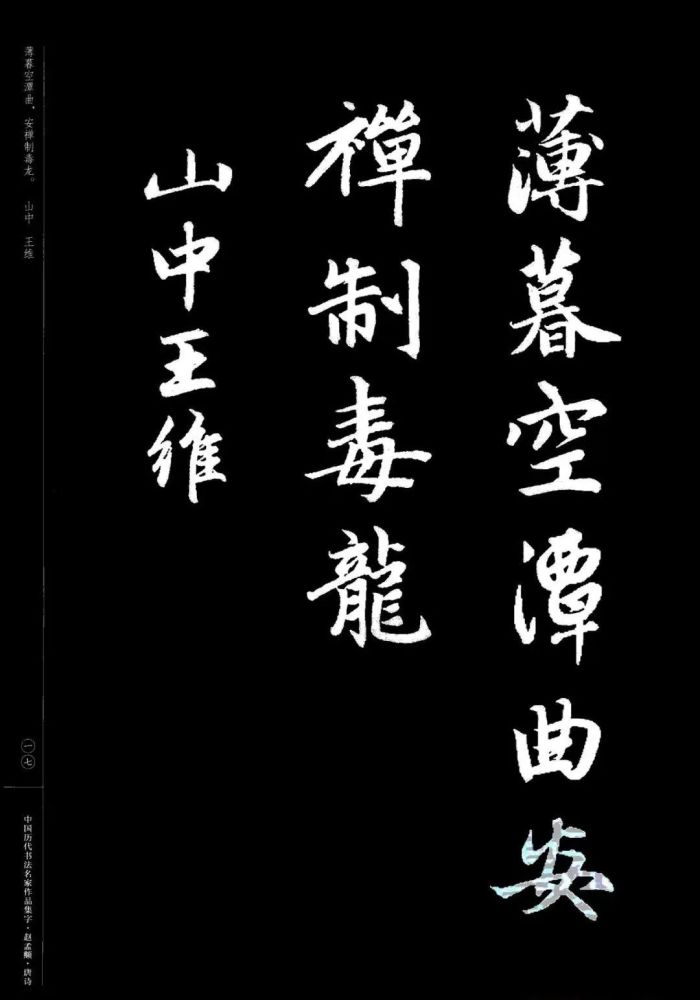 薄暮空潭曲安
禪制毒龍
山中王维
薄暮空潭曲，安禅制毒龙。 山中 王维
一七
中国历代书法名家作品集字·赵孟頫·唐诗